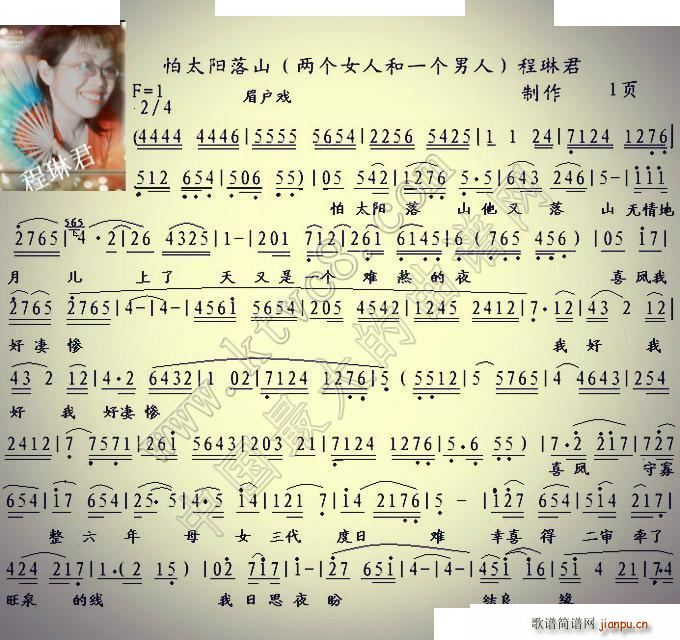 怕太阳落山（两个女人和一个男人）程琳君
F=1 眉户戏 制作 1页
2/4
程琳君
(4444 4446|5555 5654|2256 5425|1 1 24|7124 1276|
512 654|506 55)|05 542|1276 5·5|643 246|5-|111
怕太阳 落 山他又 落 山 无情地
2765|4· 2|26 4325|1-|201 712|261 6145|6 (765 456)|05 17|
月 儿 上了 天又是一个 难熬的夜 喜凤我
2765 2765|4-|4-|4561 5654|205 4542|1245 2412|7·12|43 2 12|
好凄惨 我好 我
43 2 12|4·2 6432|1 02|7124 1276|5 (5512 5 5765|4 4643|254
好 我 好凄惨
2412|7 7571|261 5643|203 21|7124 1276|5·6 55)|7·2 217|727
喜凤 守寡
654|17 654|25·5|4·5 245|121 7|14 2176|5-|127 654|17 654|217
整六年 母女三代 度日 难 幸喜得 二审牵了
424 217|1·(2 15)|02 717|127 651|4-|4-|451 651|5·7|65
旺泉 的线 我日思夜盼 结良 缘
www.ktvc8.com
中国最大的曲谱网
歌谱简谱网
jianpu.cn